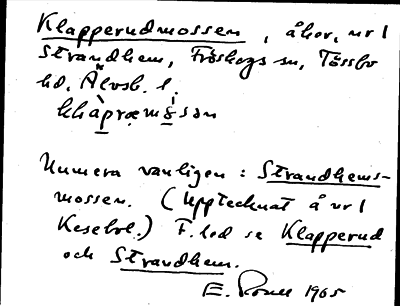 Klapperudmossen, åkor, nr 1
Strandhem, Fröskogs sn, Tössbo
hd. Älvsb. l.
Numera vanligen: Strandhems-
mossen. (Upptecknat å nr 1
Kesebol.) F.led se Klapperud
och Strandhem.
E. 1965